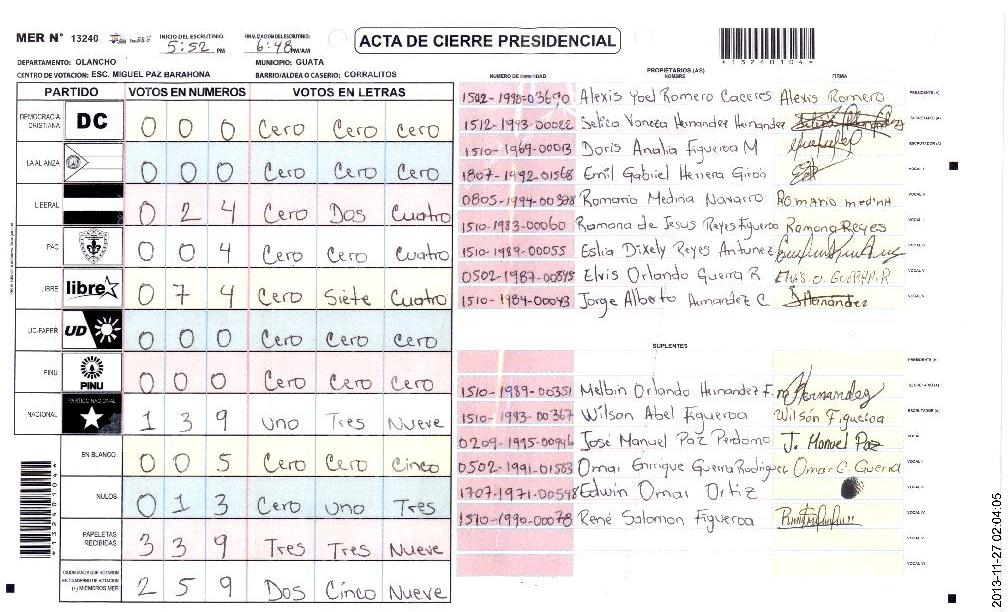 MER N° 13240 INICIO DEL ESCRUTINIO: 5:52 PM FINALIZACION DEL ESCRUTINIO: 6:48 PM/AM ACTA DE CIERRE PRESIDENCIAL
*13240104*
DEPARTAMENTO: OLANCHO MUNICIPIO: GUATA
CENTRO DE VOTACION: ESC. MIGUEL PAZ BARAHONA BARRIO/ALDEA O CASERIO: CORRALITOS
PARTIDO VOTOS EN NUMEROS VOTOS EN LETRAS
DEMOCRACIA CRISTIANA DC 0 0 0 Cero Cero cero
LA ALIANZA 0 0 0 Cero Cero Cero
LIBERAL 0 2 4 Cero Dos Cuatro
PAC 0 0 4 Cero Cero Cuatro
LIBRE libre 0 7 4 Cero Siete Cuatro
UD-FAPER UD 0 0 0 Cero Cero Cero
PINU PINU 0 0 0 Cero Cero Cero
NACIONAL PARTIDO NACIONAL 1 3 9 uno Tres Nueve
EN BLANCO 0 0 5 Cero Cero Cinco
NULOS 0 1 3 Cero uno Tres
PAPELETAS RECIBIDAS 3 3 9 Tres Tres Nueve
CIUDADANOS QUE VOTARON EN CUADERNO DE VOTACION (+) MIEMBROS MER 2 5 9 Dos Cinco Nueve
*13240104*
PROPIETARIOS (AS)
NUMERO DE IDENTIDAD NOMBRE FIRMA
Alexis Yoel Romero Caceres Alexis Romero PRESIDENTE (A)
1512-1993-00022 Vaneza Hernandez Hernandez SECRETARIO (A)
1510-1969-00013 Doris Analia Figueroa M ESCRUTADOR (A)
1807-1992-01568 Emil Gabriel Herrera Girón VOCAL I
Romario Medina Navarro Romario medina VOCAL II
1510-1983-00060 Ramona de Jesus Reyes Figueroa Ramona Reyes VOCAL III
1510-1989-00055 Eslia Dixely Reyes Antunez VOCAL IV
0502-1987-00845 Elvis Orlando Guerra R. VOCAL V
1510-1984-00043 Jorge Alberto Hernandez C. Hernández
SUPLENTES
PRESIDENTE (A)
1510-1989-00351 Melbin Orlando Hernandez F. Hernandez SECRETARIO (A)
1510-1993-00367 Wilson Abel Figueroa Wilsón Figueroa ESCRUTADOR (A)
0209-1995-00946 José Manuel Paz Perdomo J. Manuel Paz VOCAL I
0502-1991-01583 Omar Enrique Guerra Rodriguez Omar E. Guerra VOCAL II
1707-1971-00548 Edwin Omar Ortiz VOCAL III
1510-1990-00078 René Salomon Figueroa VOCAL IV
VOCAL V
VOCAL VI
2013-11-27 02:04:05